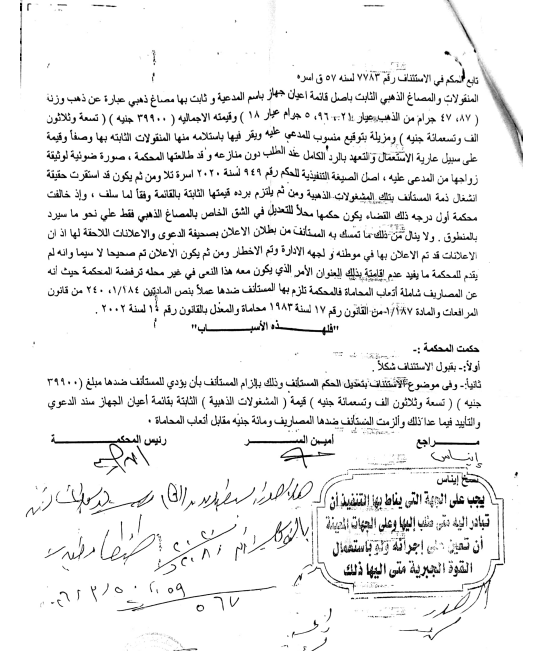 تابع الحكم في الاستئناف رقم ٧٧٨٣ لسنه ٥٧ ق اسره
المنقولات والمصاغ الذهبي الثابت باصل قائمة اعيان جهاز باسم المدعية و ثابت بها مصاغ ذهبي عبارة عن ذهب وزنة
(٤٧,٨٧ جرام من الذهب عيار ٢١، ٥,٩٦ جرام عيار ١٨ ) وقيمته الاجماليه ( ٣٩٩٠٠ جنيه ) ( تسعة وثلاثون
الف وتسعمائة جنيه ) ومزيلة بتوقيع منسوب للمدعى عليه ويقر فيها باستلامه منها المنقولات الثابته بها وصفاً وقيمة
على سبيل عارية الاستعمال والتعهد بالرد الكامل عند الطلب دون منازعه وقد طالعتها المحكمة ، صورة ضوئية لوثيقة
زواجها من المدعى عليه ، اصل الصيغة التنفيذية للحكم رقم ٩٤٩ لسنه ٢٠٢٠ اسرة تلا ومن ثم يكون قد استقرت حقيقة
انشغال ذمة المستأنف بتلك المشغولات الذهبية ومن ثم يلتزم برده قيمتها الثابتة بالقائمة وفقاً لما سلف ، وإذ خالفت
محكمة أول درجه ذلك القضاء يكون حكمها محلاً للتعديل في الشق الخاص بالمصاغ الذهبي فقط علي نحو ما سيرد
بالمنطوق . ولا ينال من ذلك ما تمسك به المستأنف من بطلان الاعلان بصحيفة الدعوى والاعلانات اللاحقة لها اذ ان
الاعلانات قد تم الاعلان بها في موطنه و لجهه الادارة وتم الاخطار ومن ثم يكون الاعلان تم صحيحا لا سيما وانه لم
يقدم للمحكمة ما يفيد عدم إقامتة بذلك العنوان الأمر الذي يكون معه هذا النعى في غير محله ترفضة المحكمة حيث أنه
عن المصاريف شاملة أتعاب المحاماة فالمحكمة تلزم بها المستأنف ضدها عملاً بنص المادتين ١/١٨٤، ٢٤٠ من قانون
المرافعات والمادة ١/١٨٧ من القانون رقم ١٧ لسنة ١٩٨٣ محاماة والمعدل بالقانون رقم ١٠ لسنة ٢٠٠٢ .
"فلهـــذه الأسبـــاب"
حكمت المحكمة :-
أولاً:- بقبول الاستئناف شكلاً .
ثانياً:- وفى موضوع الاستئناف بتعديل الحكم المستأنف وذلك بإلزام المستأنف بأن يؤدي للمستأنف ضدها مبلغ ( ٣٩٩٠٠
جنيه ) ( تسعة وثلاثون الف وتسعمائة جنيه ) قيمة ( المشغولات الذهبية ) الثابتة بقائمة أعيان الجهاز سند الدعوي
والتأييد فيما عدا ذلك وألزمت المستأنف ضدها المصاريف ومائة جنيه مقابل أتعاب المحاماة .
مـــراجع أميــن الســـر رئيس المحكمـــة
إيناس
نسخ إيناس
يجب على الجهة التى يناط بها التنفيذ أن
تبادر اليه متى طلب إليها وعلى الجهات المعينة
أن تعين على إجرائه ولو باستعمال
القوة الجبرية متى اليها ذلك